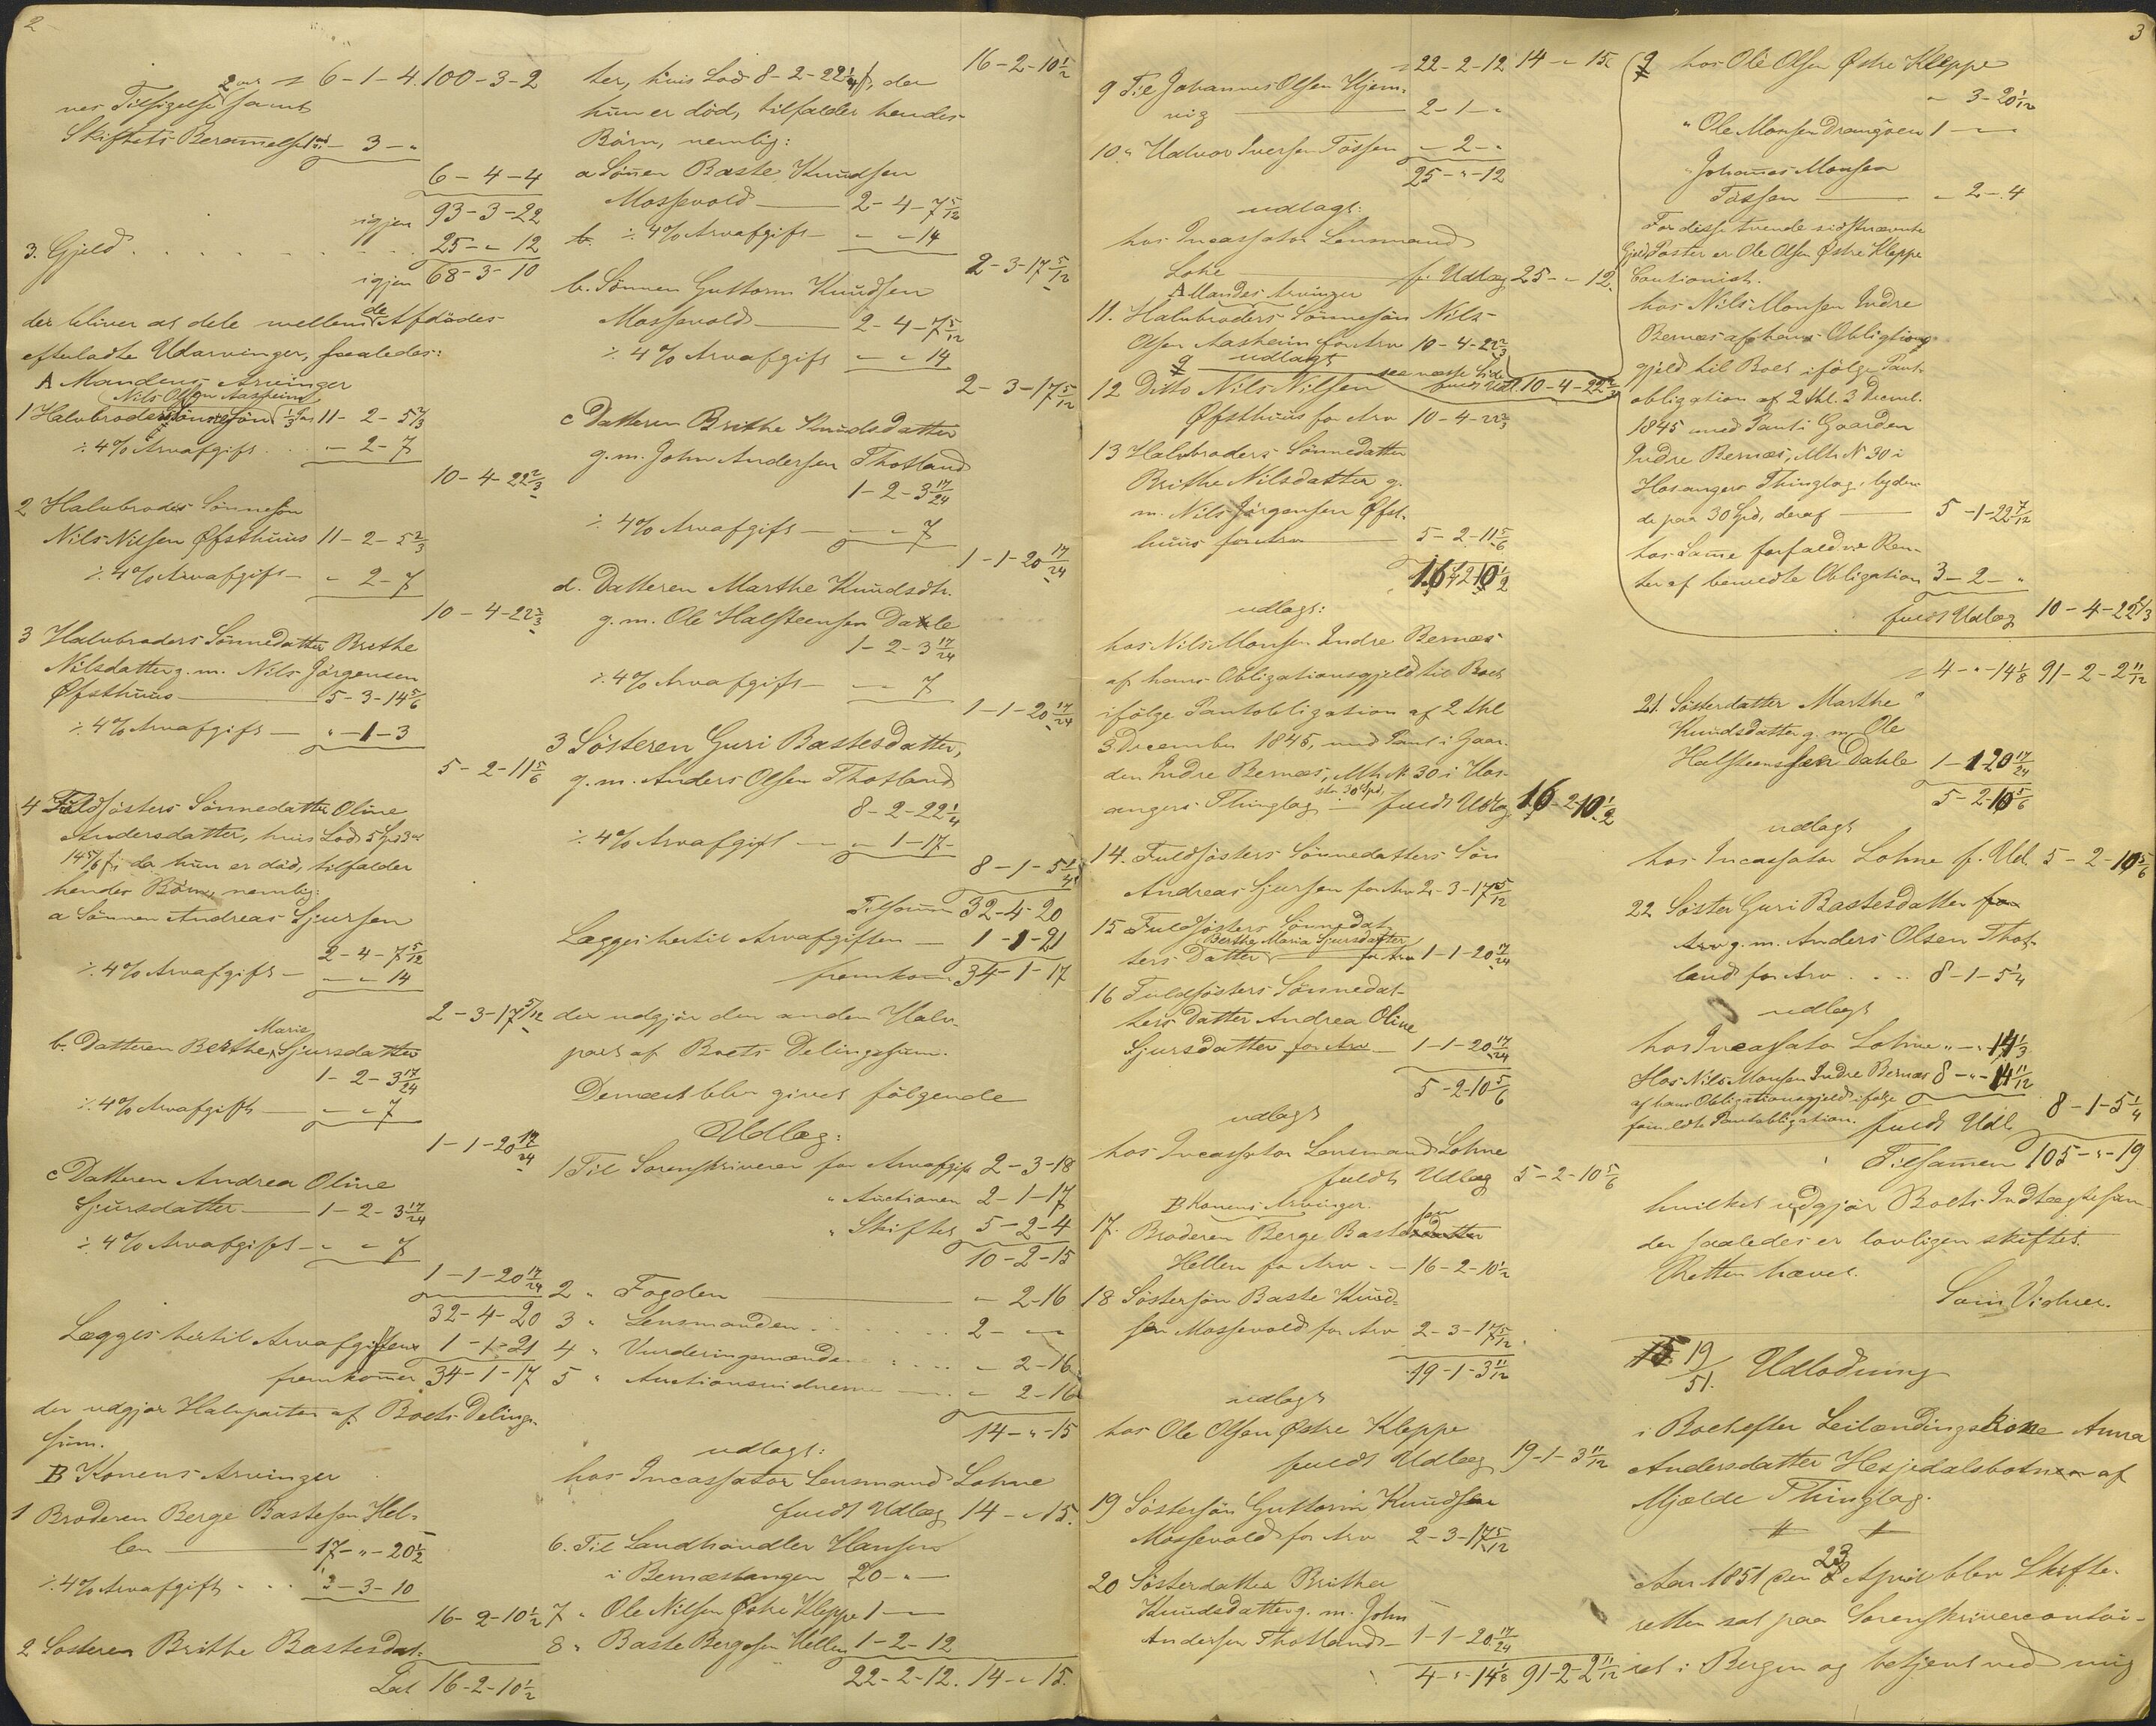 2
2 ort ~ 6-1-4. 100-3-2
nes Tilsigelse samt
Skiftets Berammelse - 3-"
6-4-4
igjen 93-3-22
3. Gjeld . . . . . . 25-"-12
igjen 68-3-10
der bliver at dele mellem de Afdödes
efterladte Udarvinger, saaledes:
A Mandens Arvinger
Nils Olsen Aasheim
1 Halvbroders Sönnesön 11-2-5 2/3
÷ 4% Arvafgift . . - 2-7
10-4-22 2/3
2 Halvbroders Sönnesön
Nils Nilsen Øfsthuus 11-2-5 2/3
÷ 4% Arvafgift - " 2-7
10-4-22 2/3
3 Halvbroders Sönnedatter Brithe
Nilsdatter g. m. Nils Jörgensen
Øfsthuus - 5-3-14 5/6
÷ 4% Arvafgift - "-1-3
5-2-11 5/6
4 Fuldsösters Sönnedatter Oline
Andersdatter, hvis Lod 5 Spd 3 ort
14 5/6 ß, da hun er död, tilfalder
hendes Börn, nemlig:
a Sönnen Andreas Sjursen
2-4-7 5/12
÷ 4% Arvafgift - "-"14
2-3-17 5/12
b. Datteren Berthe Marie Sjursdatter
1-2-3 17/24
÷ 4% Arvafgift - "-"7
1-1-20 17/24
c Datteren Andrea Oline
Sjursdatter - 1-2-3 17/24
÷ 4% Arvafgift - "-"7
1-1-20 17/24
32-4-20
Lægges hertil Arvafgiften 1-1-21
fremkommer 34-1-17
der udgjör Halvparten af Boets Delings-
sum.
B Konens Arvinger
1 Broderen Berge Bastesen Hel-
len - 17-"-20 1/2
÷ 4% Arvafgift . . . "-3-10
16-2-10 1/2
2 Sösteren Brithe Bastesdat-
Lat 16-2-10 1/2
16-2-10 1/2
ter, hvis Lod 8-2-22 1/4 ß, der
hun er död, tilfalder hendes
Börn, nemlig:
a Sönnen Baste Knudsen
Mossevold - 2-4-7 5/12
÷ 4% Arvafgift - "-"14
2-3-17 5/12
b. Sönnen Guttorm Knudsen
Mossevold - 2-4-7 5/12
÷ 4% Arvafgift - "-"14
2-3-17 5/12
c Datteren Brithe Knudsdatter
g. m. John Andersen Thotland
1-2-3 17/24
÷ 4% Arvafgift - "-"7
1-1-20 17/24
d. Datteren Marthe Knudsdtr.
g. m. Ole Halsteensen Dahle
1-2-3 17/24
÷ 4% Arvafgift - "-"7
1-1-20 17/24
3 Sösteren Guri Bastesdatter,
g. m. Anders Olsen Thotland
8-2-22 1/4
÷ 4% Arvafgift - "-1-17
8-1-5 1/4
Tilsamm 32-4-20
Lægges hertil Arvafgiften - 1-1-21
fremkom 34-1-17
der udgjör den anden Halv-
part af Boets Delingssum.
Dernæst blev givet fölgende
Udlæg:
1 Til Sorenskriveren for Arvafgift 2-3-18
" Auctionen 2-1-17
" Skiftet 5-2-4
10-2-15
2 " Fogden - "-2-16
3 " Lensmanden . . . 2-"-"
4 " Vurderingsmændene . . . "-2-16
5 " Auctionsvidnerne - "-2-16
14-"-15
udlagt:
hos Incassator Lensmand Lohne
fuldt Udlæg 14-"-15.
6. Til Landhandler Hansen
i Bernæstangen 20-"-
7 " Ole Nilsen Østre Kleppe 1-"-
8 " Baste Bergesen Hellen 1-2-12
22-2-12. 14-"-15.
~ 22-2-12 14-"-15
9 Til Johannes Olsen Hjem-
vig - 2-1-"
10 " Halvor Iversen Tössen "-2-"
25-"-12
udlagt:
hos Incassator Lensmand
Lohe - f. Udlæg 25-"-12.
A Mandens Arvinger
11. Halvbroders Sönnesön Nils
Olsen Aasheim for Arv 10-4-22 2/3
udlagt
see næste Side fuldt Udl. 10-4-22 2/3
12 Ditto Nils Nilsen
Øfsthuus for Arv 10-4-22 2/3
13 Halvbroders Sönnedatter
Brithe Nilsdatter g.
m. Nils Jörgensen Øfst-
huus for Arv 5-2-11 5/6
16-2-10 1/2
udlagt:
hos Nils Monsen Indre Bernæs
af hans Obligationsgjeld til Boet
ifölge Pantobligation af 2 thl
3 December 1845, med Pant i Gaar-
den Indre Bernæs, Mtr. N 30 i Hos-
angers Thinglag str. 30 Spd, fuldt Udlæg 16-2-10 1/2
14. Fuldsösters Sönnedatters Sön
Andreas Sjursen for Arv 2-3-17 5/12
15 Fuldsösters Sönnedat-
ters Datter Berthe Maria Sjursdatter for Arv 1-1-20 17/24
16 Fuldsösters Sönnedat-
ters Datter Andrea Oline
Sjursdatter for Arv - 1-1-20 17/24
5-2-10 5/6
udlagt
hos Incassator Lensmand Lohne
fuldt Udlæg 5-2-10 5/6
B Konens Arvinger.
17. Broderen Berge Bastesen
Hellen for Arv - 16-2-10 1/2
18 Söstersön Baste Knud-
sen Mossevold for Arv 2-3-17 5/12
19-1-3 11/12
udlagt
hos Ole Olsen Østre Kleppe
fuldt Udlæg 19-1-3 11/12
19 Söstersön Guttorm Knudsen
Mossevold for Arv 2-3-17 5/12
20 Sösterdatter Brithe
Knudsdatter g. m. John
Andersen Thotland - 1-1-20 17/24
4-"-14 1/8 91-2-2 11/12
3
hos Ole Olsen Østre Kleppe
"-3-20 1/12
" Ole Monsen Drangöen 1-"-"
" Johannes Monsen
Tössen - "-2-4
For disse tvende sidstnævnte
Gjelds Poster er Ole Olsen Østre Kleppe
Cautionist.
hos Nils Monsen Indre
Bernæs af hans Obligtions-
gjeld til Boet ifölge Pant-
obligation af 2 thl. 3 Decmb.
1845 med Pant i Gaarden
Indre Bernæs, Mtr N 30 i
Hosangers Thinglag, lyden-
de paa 30 Spd, deraf - 5-1-22 7/12
hos Samme forfaldne Ren-
ter af bemeldte Obligation 3-2-"
fuldt Udlæg 10-4-22 2/3
~ 4-"-14 1/8 91-2-2 11/12
21. Sösterdatter Marthe
Knudsdatter g. m. Ole
Halsteensen Dahle 1-1-20 17/24
5-2-10 5/6
udlagt
hos Incassator Lohne f. Udl. 5-2-10 5/6
22 Söster Guri Bastesdatter for
Arv g. m. Anders Olsen Thot-
land for Arv . . . 8-1-5 1/4
udlagt
hos Incassator Lohne "-"-14 1/3
Hos Nils Monsen Indre Bernæs 8-"-14 11/12
af hans Obligationsgjeld ifølge
formeldte Pantobligation. fuldt Udl. 8-1-5 1/4
Tilsammen 105-"-19
hvilket udgjör Boets Indtægtssum
der saaledes er lovligen skiftet.
Retten hævet.
19/51. Udlodning
i Boet efter Leilændingskone Anna
Andersdatter Hesjedalsbotnen af
Mjelde Thinglag.
Aar 1851 den 23 April blev Skifte-
retten sat paa Sorenskrivercontoi-
ret i Bergen og betjent ved mig